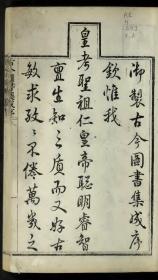 御製古今圖書集成序
欽惟我
皇考聖祖仁皇帝聰明睿智
亶生知之質而又好古
敏求孜孜不倦萬幾之